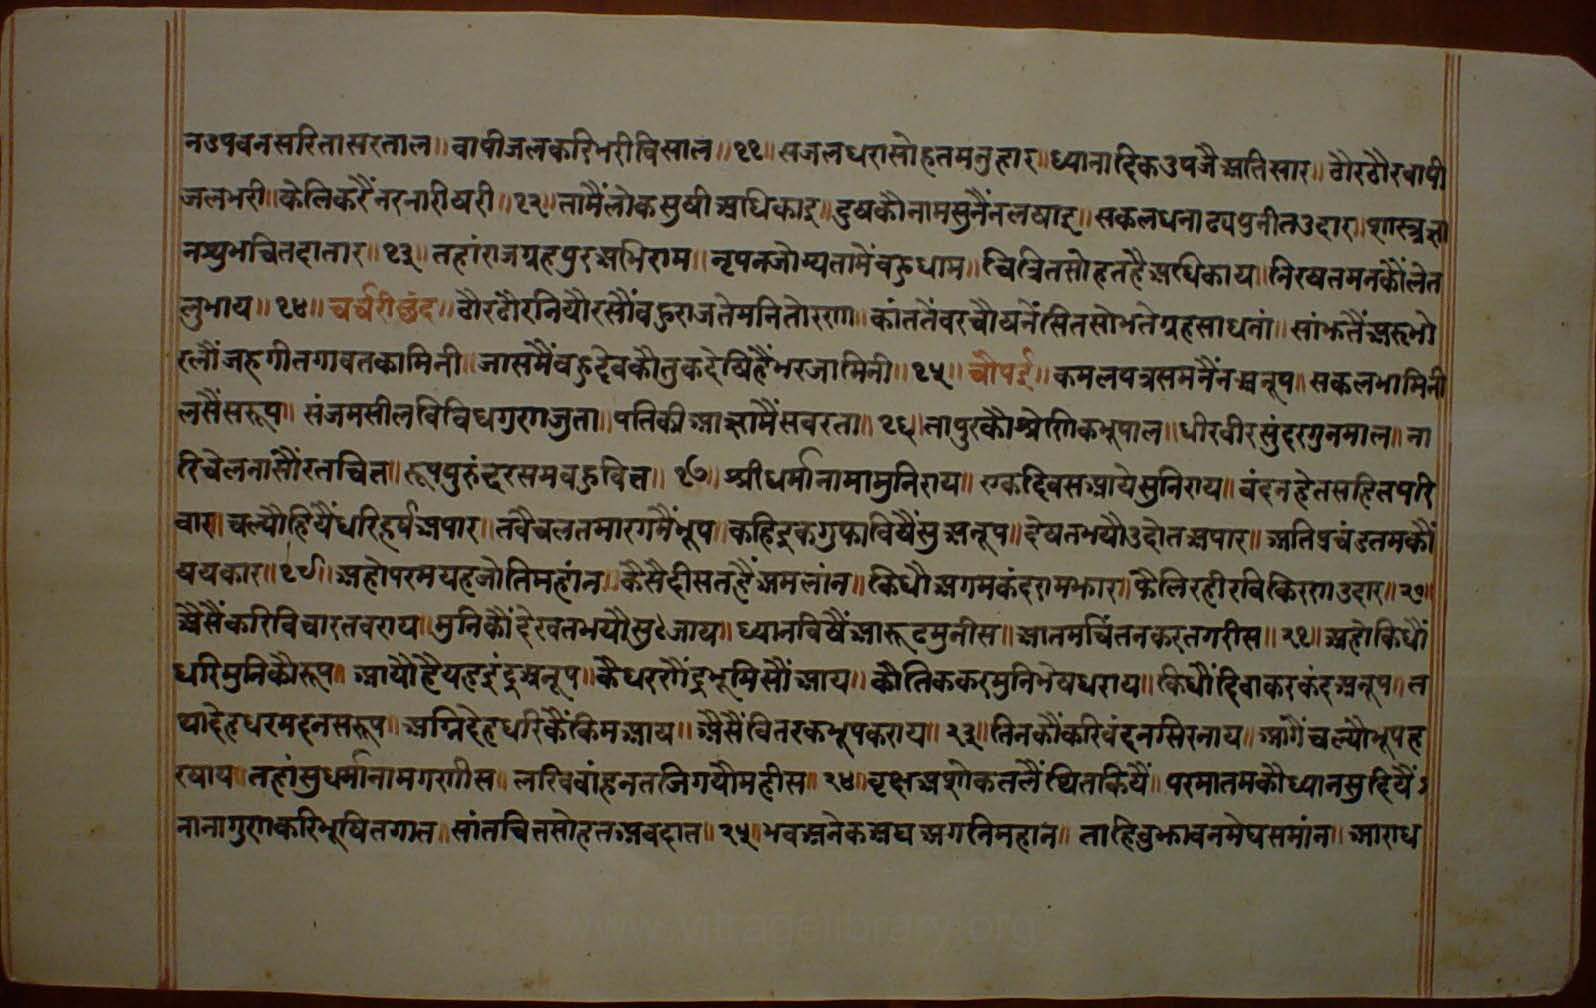 नउपवनसरितासरताल॥ वापीजलकरिभरीविसाल॥ १२॥ सजलधरासोहतमनुहार॥ ध्यानादिकउपजैअतिसार॥ ठौरठौरवापी
जलभरी॥ केलिकरैंनरनारीषरी॥ १२॥ तामैंलोकसुषीअधिकाइ॥ दुषकौनामसुनैंनलषाइ॥ सकलधनाढ्यपुनीतउदार॥ शास्त्रज्ञा
नशुभचितदातार॥ १३॥ तहांराजग्रहपुरअभिराम॥ नृपनजोग्यतामेंबहुधाम॥ चित्रितसोहतहैअधिकाय॥ निरषतमनकौंलेत
लुभाय॥ १४॥ चर्चरीछंद॥ ठौरठौरनिपौरसौंबहुराजतेमनितोरणा॥ कांततेंवरचौयनेंसितसोभतेग्रहसाधनां॥ सांझतैंअरुभो
रलौंजहगीतगावतकामिनी॥ जासमैंबहुदेवकौतुकदेषिहैंभरजामिनी॥ १५॥ चौपई॥ कमलपत्रसमनैंनअनूप॥ सकलभामिनी
लसैंसरूप॥ संजमसीलविविधगुणजुता॥ पतिकीआज्ञामैंसबरता॥ १६॥ तापुरकौश्रेणिकभूपाल॥ धीरवीरसुंदरगुनमाल॥ ना
रिचेलनांसौंरतचित्त॥ रूपपुरंदरसमबहुवित्त॥ १७॥ श्रीधर्मानामामुनिराय॥ एकदिवसआयेमुनिराय॥ वंदनहेतसहितपरि
वार॥ चल्यौहियैंधरिहर्षअपार॥ तबैचलतमारगमैंभूप॥ कहिइकगुफाविषैंसुअनूप॥ देषतभयौउदोतअपार॥ अतिप्रचंडतमकौं
षयकार॥ १९॥ अहोपरमयहजोतिमहांन॥ कैसैदीसतहैंअमलांन॥ किधौंअगमकंदरामझार॥ फैलिरहीरविकिरणउदार॥ २०॥
असैंकरिविचारतवराय॥ मुनिकौंदेखतभयौसुजाय॥ ध्यानविषैंआरूढमुनीस॥ आतमचिंतनकरतगरीस॥ २१॥ अहोकिधौं
धरिमुनिकौरूप॥ आयौहैयहइंदुअनूप॥ कैधरणेंदुभूमिसौंआय॥ कौतिककरमुनिभेषधराय॥ किधौंदिवाकरकंदअनूप॥ त
थादेहधरमदनसरूप॥ अग्निदेहधरिकैंकिमआय॥ असैंवितरकभूपकराय॥ २३॥ तिनकौंकरिवंदनसिरनाय॥ आगैंचल्यौभूपह
रषाय॥ तहांसुधर्मानामगरणीस॥ लखिवांहनतजिगयौमहीस॥ २४॥ वृक्षअशोकतलैंथितकियैं॥ परमातमकौध्यानसुहियैं॥
नानागुणकरिभूषितगात॥ सांतचितसोहतअवदात॥ २५॥ भवअनेकअघअगनिमहान॥ ताहिबुझावनमेघसमांन॥ आराध